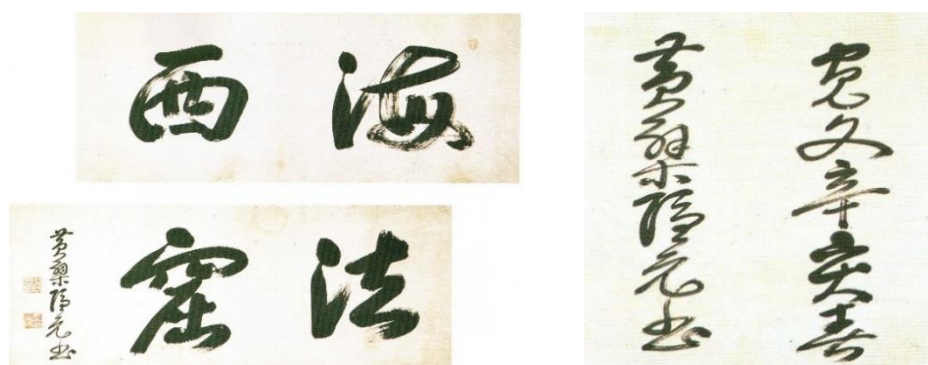 海西
法窟
黄檗隱元書
寛文辛亥春
黄檗隱元書